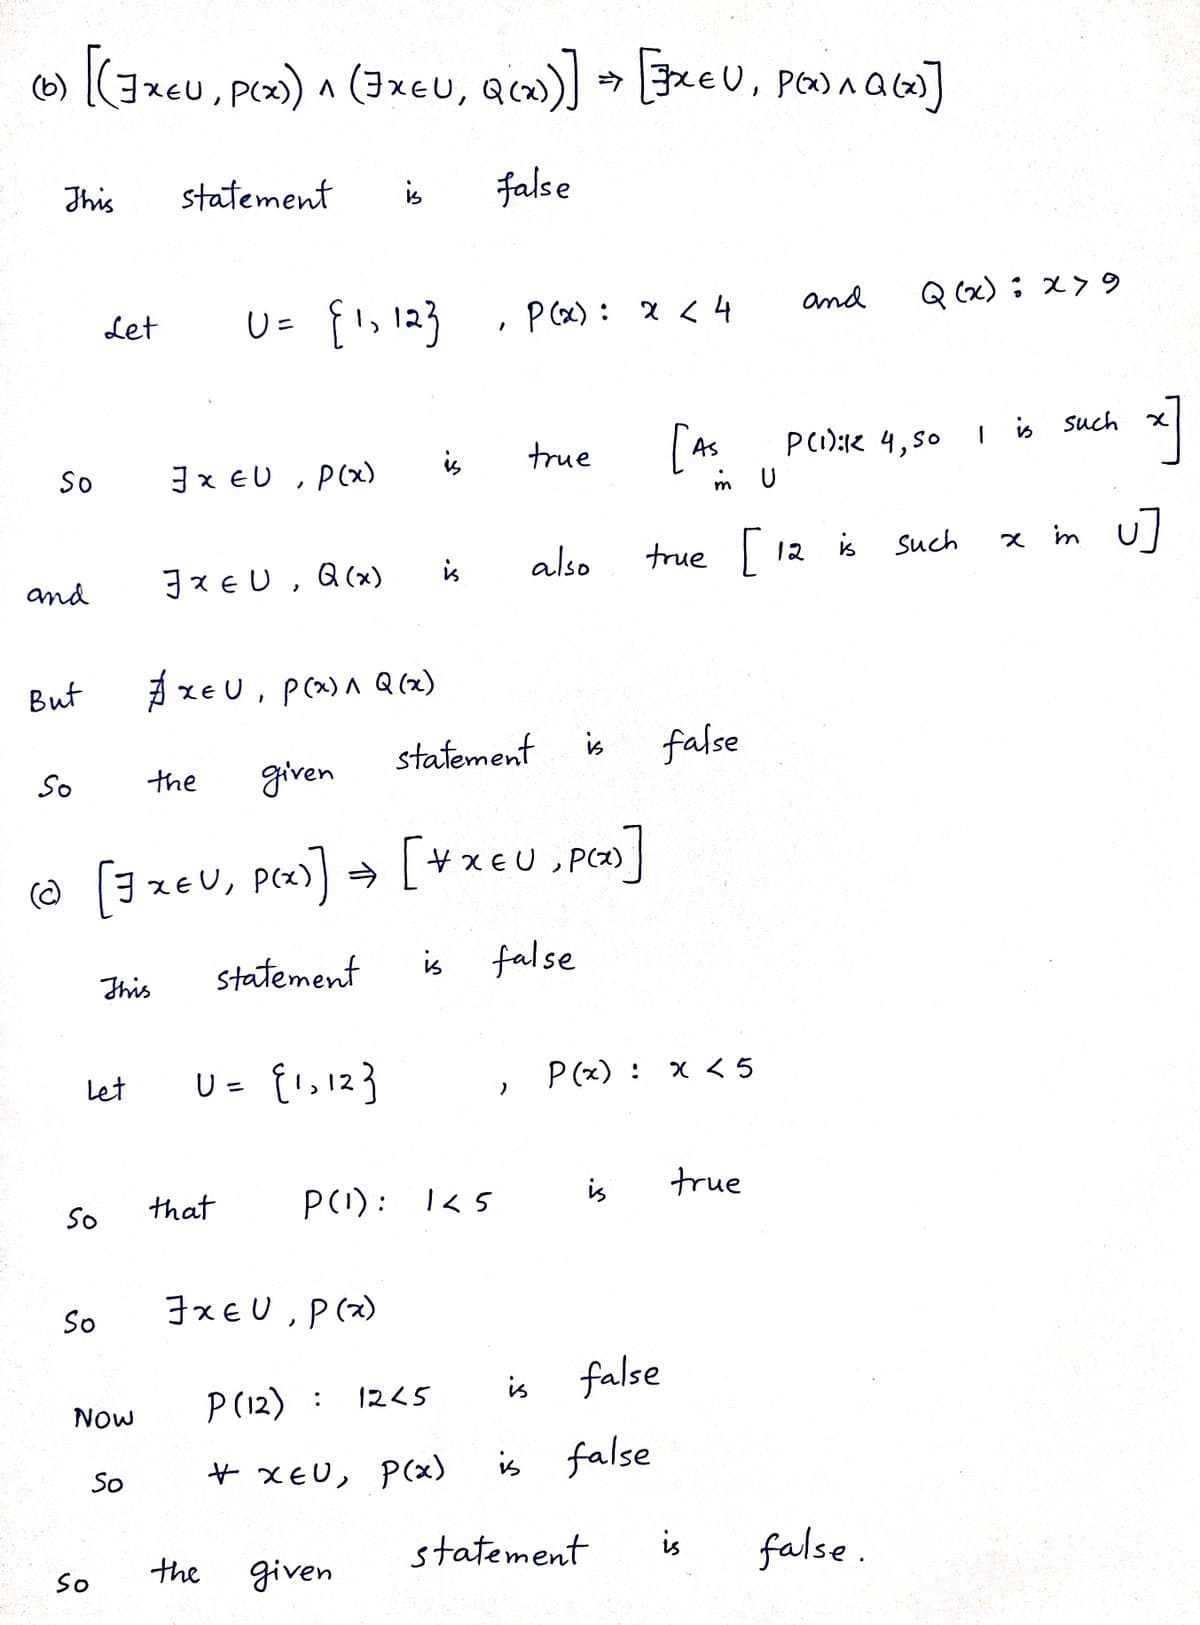 (b) [(∃x∈U, P(x)) ∧ (∃x∈U, Q(x))] ⇒ [∃x∈U, P(x) ∧ Q(x)]
This statement is false
Let U = {1, 12} , P(x) : x < 4 and Q(x) : x > 9
So ∃x∈U, P(x) is true [As P(1):1< 4, so 1 is such x
in U]
and ∃x∈U, Q(x) is also true [12 is such x in U]
But ∄x∈U, P(x) ∧ Q(x)
So the given statement is false
(c) [∃x∈U, P(x)] ⇒ [∀x∈U, P(x)]
This statement is false
Let U = {1, 12} , P(x) : x < 5
So that P(1) : 1 < 5 is true
So ∃x∈U, P(x)
Now P(12) : 12<5 is false
So ∀ x∈U, P(x) is false
So the given statement is false.